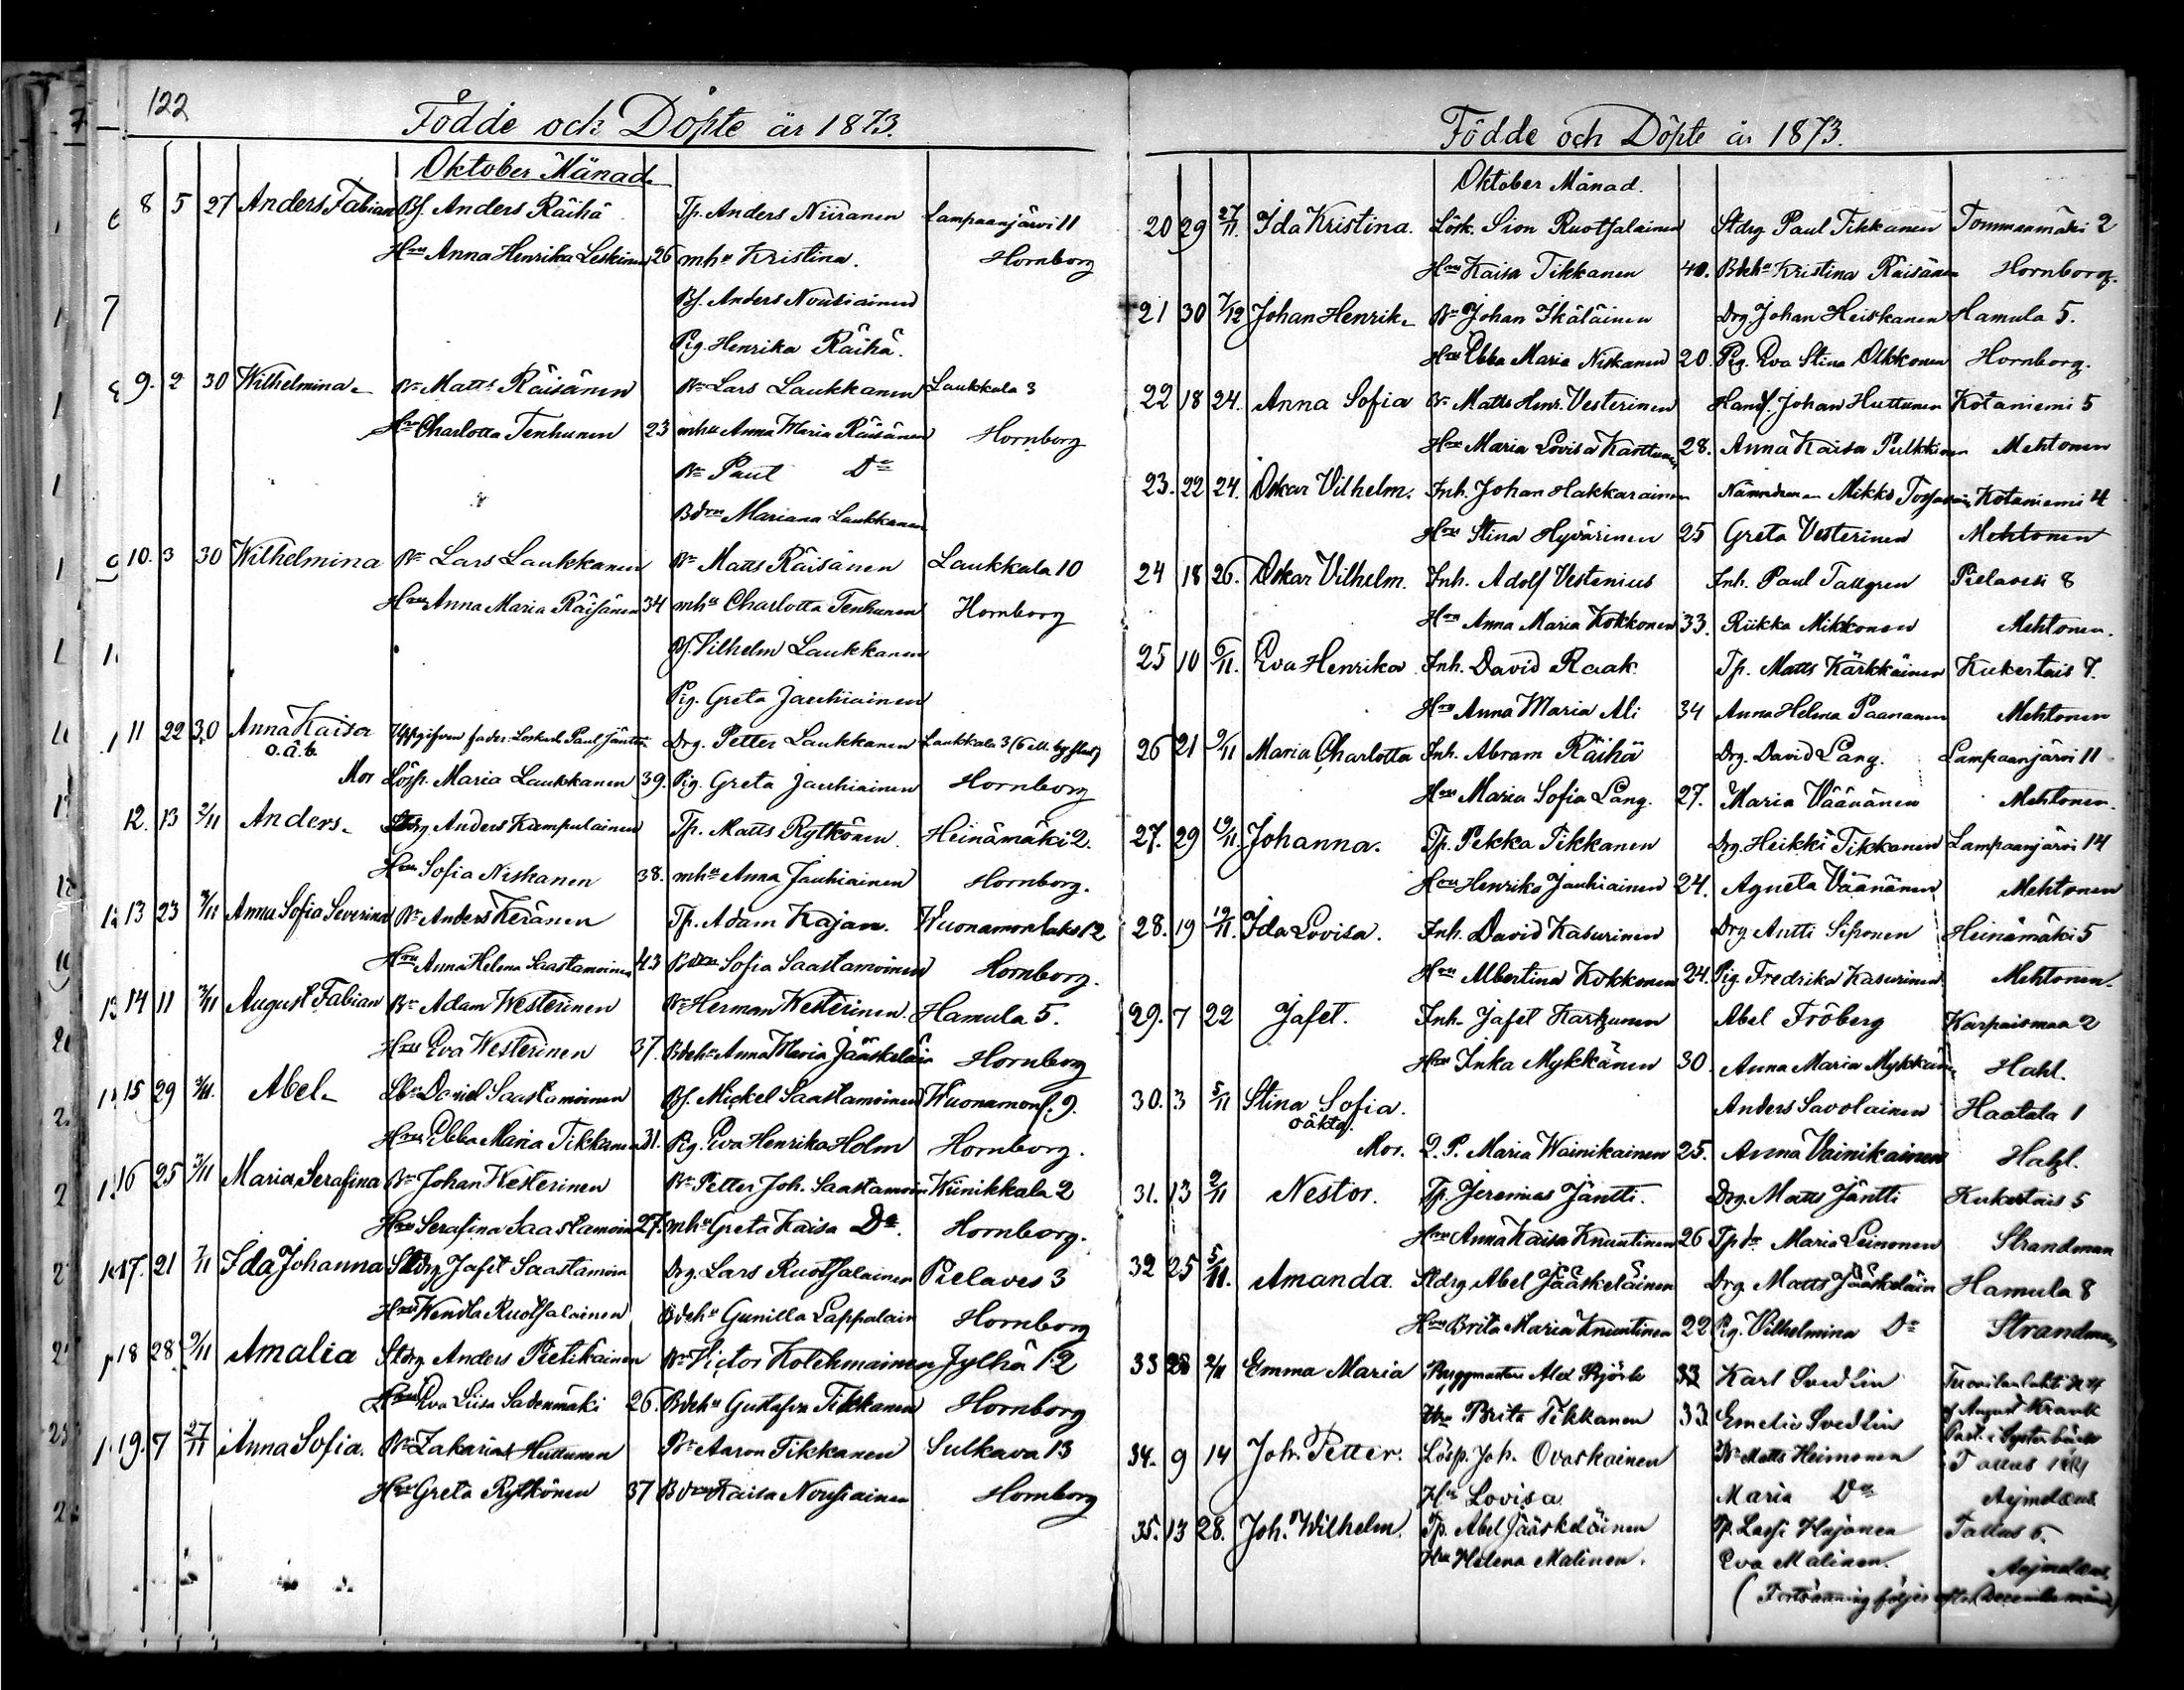 122
Födde och Döpte år 1873.
Oktober Månad
8 5 27 Anders Fabian Bf. Anders Räihä Tp. Anders Niiranen Lampaanjärvi 11
Hru Anna Henrika Leskinen 26 mhu Kristina. Hornborg
Bf. Anders Nousiainen
Pig. Henrika Räihä.
9. 2 30 Wilhelmina Bn Matts Räisänen Bn Lars Laukkanen Laukkala 3
Hru Charlotta Tenhunen 23 mhu Anna Maria Räisänen Hornborg
Bn Paul Do
Bdru Mariana Laukkanen
10. 3 30 Wilhelmina Bn Lars Laukkanen Bn Matts Räisänen Laukkala 10
Hru Anna Maria Räisänen 34 mhu Charlotta Tenhunen Hornborg
Bf. Vilhelm Laukkanen
Pig. Greta Jauhiainen
11 22 30 Anna Kaisa Uppgifven fader: Loskarl Paul Jäntti Drg. Petter Laukkanen Laukkala 3
o.ä.b.
Mor Lösp. Maria Laukkanen 39. Pig. Greta Jauhiainen Hornborg
12. 13 2/11 Anders Stdrg Anders Kumpulainen Tp. Matts Rytkönen. Heinämäki 2.
Hru Sofia Niskanen 38. mhu Anna Jauhiainen Hornborg.
13 23 2/11 Anna Sofia Severina Bn Anders Keränen Tp. Adam Kajan. Wuonamonlaks 12
Hru Anna Helena Saastamoinen 43 Bdru Sofia Saastamoinen Hornborg.
14 11 2/11 August Fabian Bn Adam Westerinen Bn Herman Westerinen. Hamula 5.
Hru Eva Westerinen 37. Bdehu Anna Maria Jääskeläin Hornborg
15 29 2/11. Abel Daniel Saastamoinen Bf. Mickel Saastamoinen Wuonamonl. 9.
Hru Ebba Maria Tikkanen 31. Pig. Eva Henrika Holm Hornborg.
16 25 2/11 Maria Serafina Bn Johan Westerinen Bn Petter Joh. Saastamoin Wiinikkala 2
Hru Serafina Saastamoin 27. mhu Greta Kaisa Do. Hornborg.
17. 21 7/11 Ida Johanna Stdrg Jafet Saastamoin Drg. Lars Ruotsalainen Pielaves 3
Hru Wendla Ruotsalainen Bdehu Gunilla Lappalain Hornborg
18 28 9/11 Amalia Stdrg Anders Pietikäinen Bn Victor Kolehmainen Jylhä 12
Hru Eva Liisa Sadenmäki 26. Bdehu Gustafva Tikkanen Hornborg
19. 7 27/11 Anna Sofia. Bn Zakarias Huttunen Bn Aaron Tikkanen Sulkava 13
Hru Greta Rytkönen 37 Bdru Kaisa Nousiainen Hornborg
Födde och Döpte år 1873.
Oktober Månad.
20 29 27/11. Ida Kristina. Lösk. Sion Ruotsalainen Stdrg Paul Tikkanen Tommanmäki 2
Hru Kaisa Tikkanen 40. Bdehu Kristina Räisänen Hornborg.
21 30 7/12 Johan Henrik Bn Johan Ikäläinen Drg Johan Heiskanen Hamula 5.
Hru Ebba Maria Niskanen 20. Pig. Eva Stina Olkkonen Hornborg.
22 18 24. Anna Sofia Bn Matts Henr. Vesterinen Handl. Johan Huttunen Kotaniemi 5
Hru Maria Lovisa Karttunen 28. Anna Kaisa Pulkkinen Mehtonen
23. 22 24. Oskar Vilhelm. Inh. Johan Hakkarainen Nämndeman Mikko Kotaniemi 4
Hru Stina Hyvärinen 25 Greta Vesterinen Mehtonen
24 18 26. Oskar Vilhelm. Inh. Adolf Vestenius Inh. Paul Tallgren Pielavesi 8
Hru Anna Maria Kokkonen 33. Riikka Mikkonen Mehtonen.
25 10 9/11. Eva Henrika Inh. David Raak. Tp. Matts Kärkkäinen Kukertais 7.
Hru Anna Maria Ali 34 Anna Helena Paananen Mehtonen
26 21 9/11 Maria Charlotta Inh. Abram Räihä Drg. David Lang. Lampaanjärvi 11
Hru Maria Sofia Lang. 27. Maria Väänänen Mehtonen.
27. 29 19/11. Johanna. Tp. Pekka Tikkanen Drg. Heikki Tikkanen Lampaanjärvi 14
Hru Henrika Jauhiainen 24. Agneta Väänänen Mehtonen
28. 19 19/11. Ida Lovisa. Inh. David Kasurinen Drg. Antti Siponen Heinämäki 5
Hru Albertina Kokkonen 24. Pig. Fredrika Kasurinen Mehtonen.
29. 7 22 Jafet. Inh. Jafet Karhunen Abel Fröberg Karpaismaa 2
Hru Inka Mykkänen 30. Anna Maria Mykkän Hahl.
30. 3 5/11 Stina Sofia. Anders Savolainen Haatala 1
oäkta.
Mor. Q. P. Maria Wainikainen 25. Anna Vainikainen Hahl.
31. 13 2/11 Nestor. Tp. Jeremias Jäntti. Drg. Matts Jäntti Kukertais 5
Hru Anna Kaisa Knuutinen 26 Maria Leinonen Strandman
32 25 5/11. Amanda. Stdrg Abel Jääskeläinen Drg. Matts Jääskeläin Hamula 8
Hru Brita Maria Knuutinen 22 Pig. Vilhelmina Do Strandman
33 28 2/11 Emma Maria Byggmästare Alex Björk 33 Karl Svedlin
Hru Brita Tikkanen 33. Emelie Svedlin af August Krank
34. 9 14 Joh. Petter. Lösp. Joh. Ovaskainen Bn Matts Heimonen
Hu Lovisa Maria Do Aejmelæus
35. 13 28. Joh. Wilhelm. Tp. Abel Jääskeläinen Tp. Lassi Hujanen Tallus 6
Hru Helena Malinen. Eva Malinen. Aejmelæus.
(Fortsättning följer efter December månad)